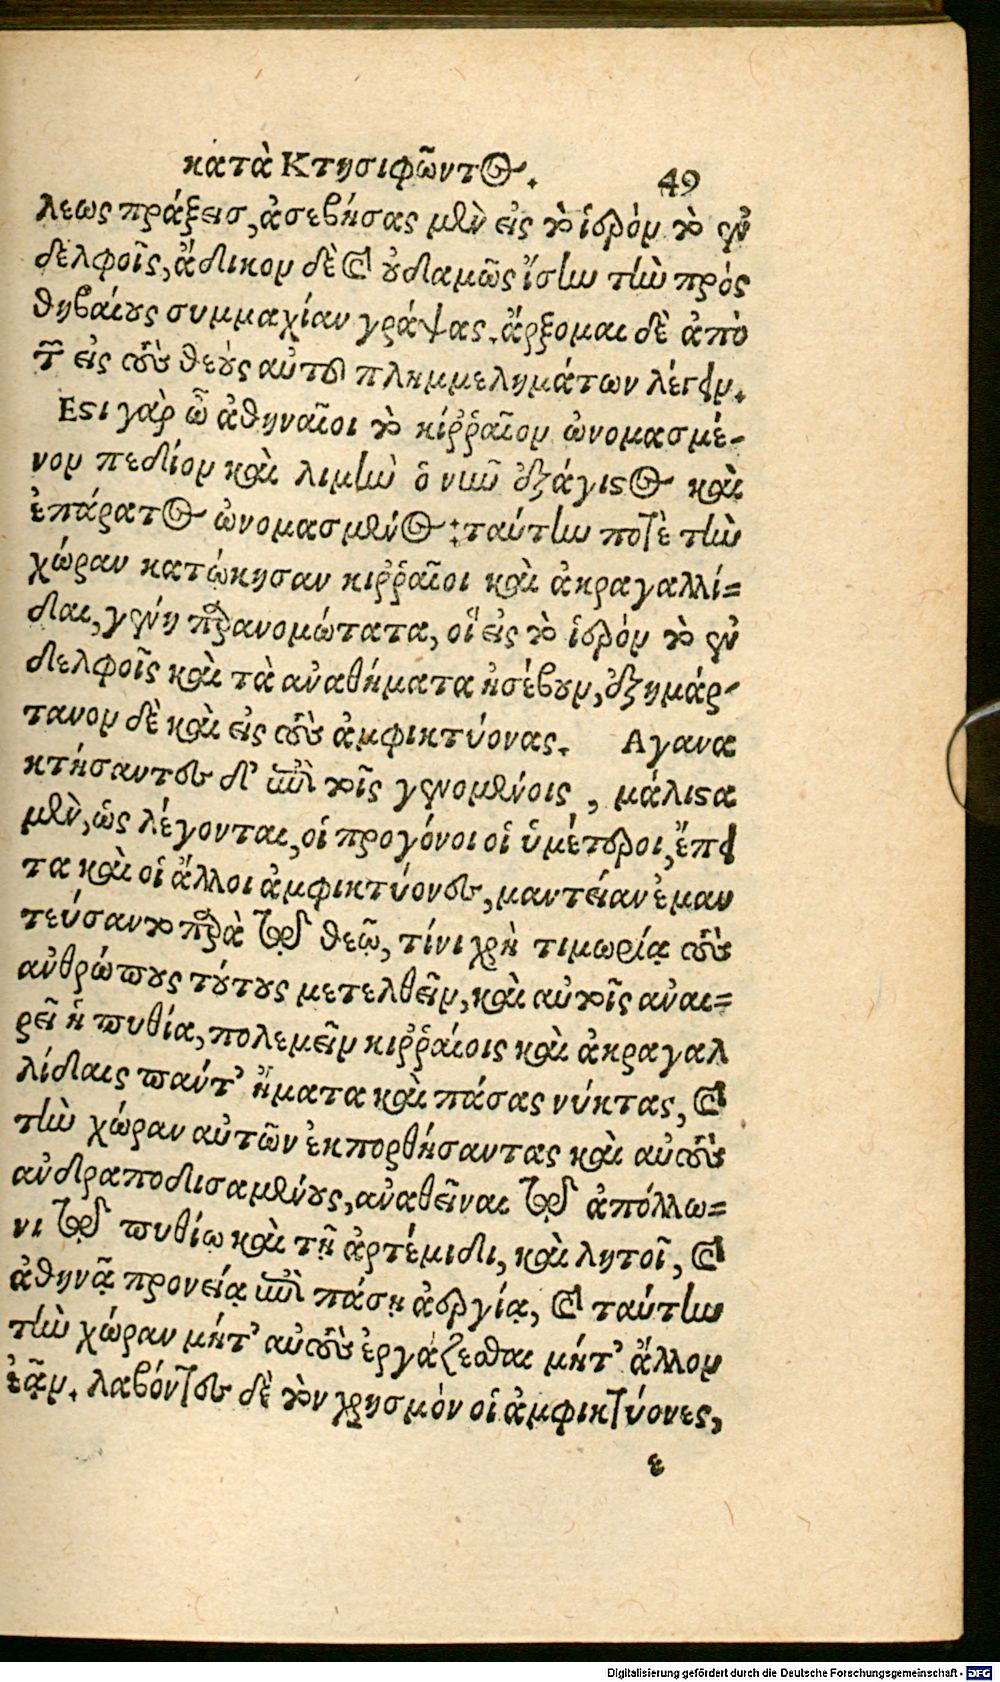 κατὰ Κτησιφῶντος. 49
λεως πράξεισ, ἀσεβήσας μὲν εἰς τὸ ἱερὸμ τὸ ἐν
δελφοῖς, ἄδικομ δὲ καὶ οὐδαμῶς ἴσην τὴν πρὸς
θηβαίους συμμαχίαν γράψας. ἄρξομαι δὲ ἀπὸ
τῶν εἰς τοὺς θεοὺς αὐτοῦ πλημμελημάτων λέγειμ.
Εστι γὰρ ὦ ἀθηναῖοι τὸ κίῤῥαῖομ ὠνομασμέ-
νομ πεδίομ καὶ λιμὴν ὁ νῦν ἐξάγιστος καὶ
ἐπάρατος ὠνομασμένος: ταύτην ποτὲ τὴν
χώραν κατώκησαν κιῤῥαῖοι καὶ ἀκραγαλλί=
δαι, γένη παρανομώτατα, οἳ εἰς τὸ ἱερὸμ τὸ ἐν
δελφοῖς καὶ τὰ ἀναθήματα ἠσέβουμ, ἐξημάρ-
τανομ δὲ καὶ εἰς τοὺς ἀμφικτύονας. Αγανα
κτήσαντες δ' ἐπὶ τοῖς γενομένοις, μάλιστα
μὲν, ὡς λέγονται, οἱ προγόνοι οἱ ὑμέτεροι, ἔπει
τα καὶ οἱ ἄλλοι ἀμφικτύονες, μαντείαν ἐμαν
τεύσαντο παρὰ τῷ θεῷ, τίνι χρὴ τιμωρίᾳ τοὺς
ἀνθρώπους τούτους μετελθεῖμ, καὶ αὐτοῖς ἀναι=
ρεῖ ἡ πυθία, πολεμεῖμ κιῤῥαίοις καὶ ἀκραγαλ
λίδαις πάντ' ἤματα καὶ πάσας νύκτας, καὶ
τὴν χώραν αὐτῶν ἐκπορθήσαντας καὶ αὐτοὺς
ἀνδραποδισαμένους, ἀναθεῖναι τῷ ἀπόλλω=
νι τῷ πυθίῳ καὶ τῇ ἀρτέμιδι, καὶ λητοῖ, καὶ
ἀθηνᾷ προνείᾳ ἐπὶ πάσῃ ἀεργίᾳ, καὶ ταύτην
τὴν χώραν μήτ' αὐτοὺς ἐργάζεσθαι μήτ' ἄλλομ
ἐᾷμ. λαβόντες δὲ τὸν χρησμὸν οἱ ἀμφικτύονες,
ε
Digitalisierung gefördert durch die Deutsche Forschungsgemeinschaft - DFG